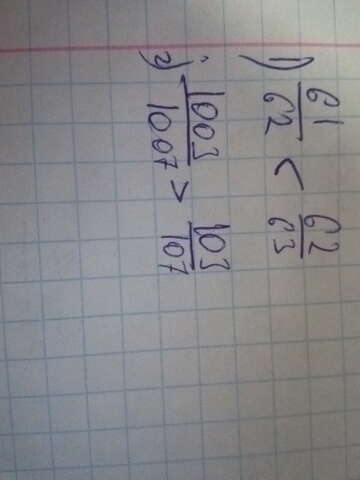 1) 61/62 < 62/63
2) 1003/1007 > 103/107